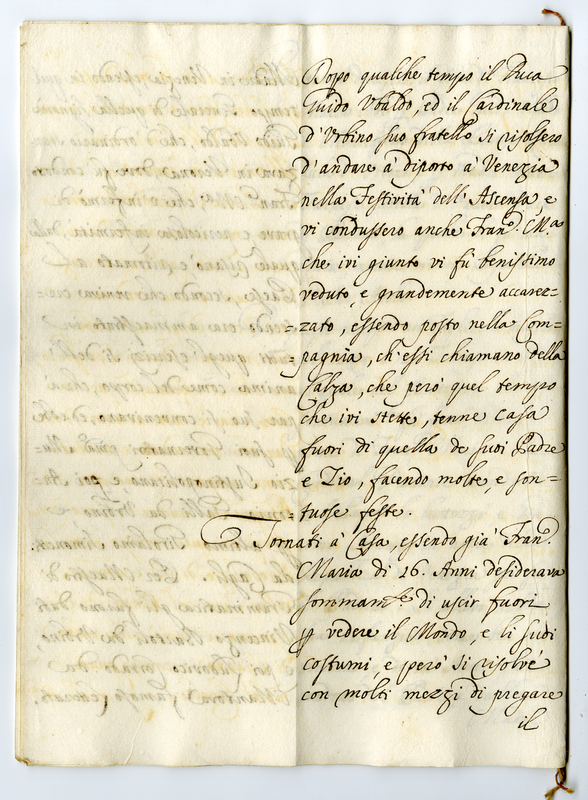 Dopo qualche tempo il Duca
Guido Vbaldo, ed il Cardinale
d'Vrbino suo fratello si risolsero
d'andare à diporto à Venezia
nella Festività dell'Ascensa, e
vi condussero anche Fran.º M.ª
che ivi giunto vi fù benissimo
veduto, e grandemente accarez=
=zato, essendo posto nella Com=
=pagnia, ch'essi chiamano della
Calza, che però quel tempo
che ivi stette, tenne casa
fuori di quella de suoi Padre
e Zio, facendo molte, e son=
=tuose feste.
Tornati à Casa, essendo già Fran.º
Maria di 16. Anni desiderava
sommam.te di uscir fuori
ꝑ vedere il Mondo, e li suoi
costumi, e però si risolvé
con molti mezzi di pregare
il